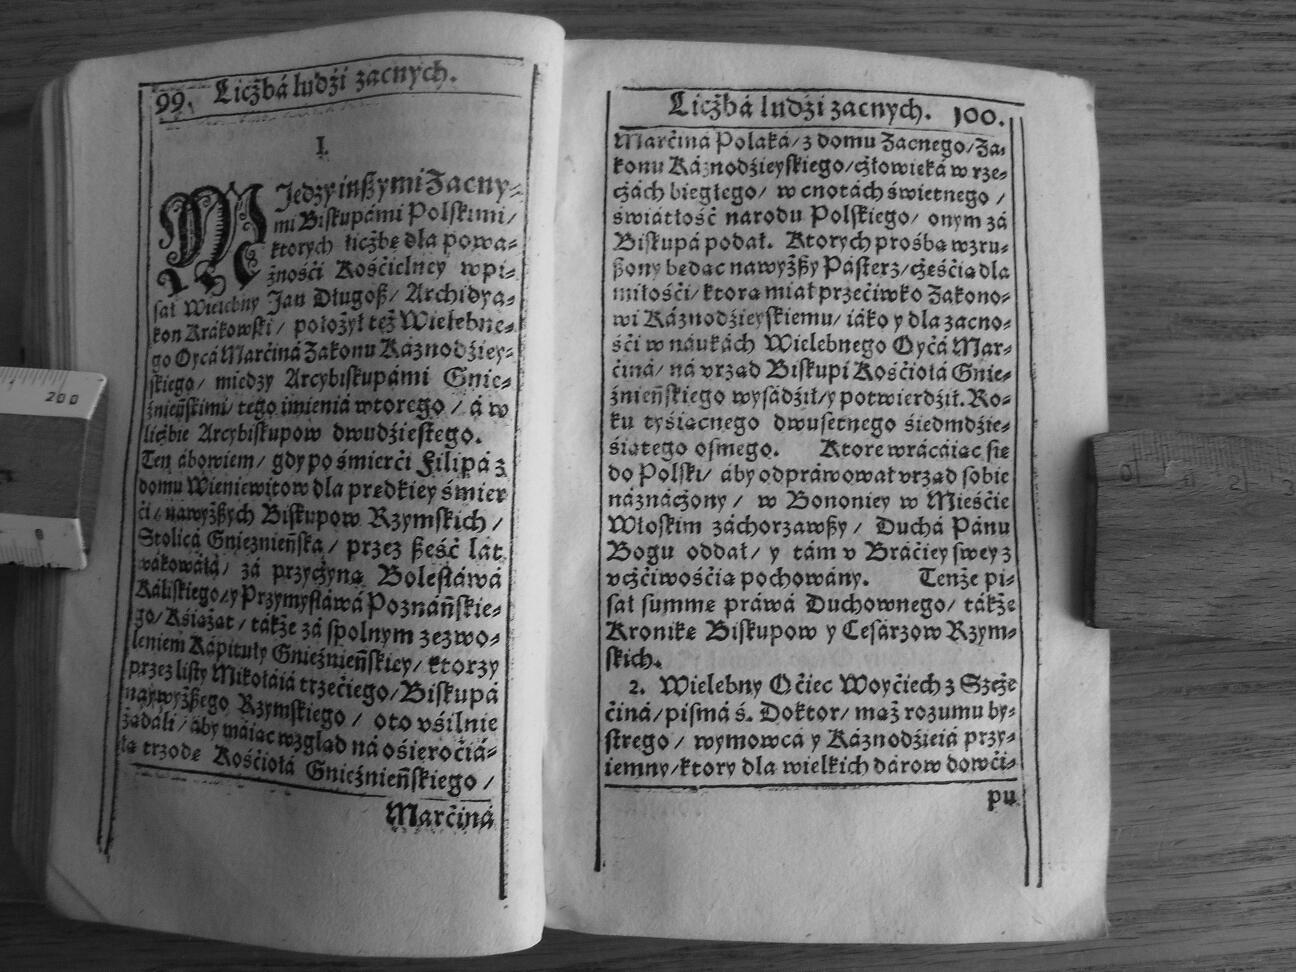 99. Liczbá ludźi zacnych.
I.
MJedzy inßymi Zacny⸗
mi Biskupámi Polskimi/
ktorych liczbę dla powa⸗
żnośći Kośćielney wpi⸗
sał Wielebny Jan Długoß/ Archidya⸗
kon Krákowski/ położył też Wielebne⸗
go Oycá Marćiná Zakonu Káznodźiey⸗
skiego/ miedzy Arcybiskupámi Gnie⸗
źnieńskimi/ tego imieniá wtorego/ á w
liczbie Arcybiskupow dwudźiestego.
Ten ábowiem/ gdy po śmierći Filipá z
domu Wieniewitow dla prędkiey śmier
ći/ nawyżßych Biskupow Rzymskich/
Stolicá Gnieznieńska/ przez ßeść lat
wakowáłá/ zá przyczyną Bolesłáwá
Káliskiego/ y Przymysłáwá Poznáńskie⸗
go/ Kśiążąt/ tákże zá spolnym zezwo⸗
leniem Kápituły Gnieźnieńskiey/ ktorzy
przez listy Mikołáiá trzećiego/ Biskupá
naywyżßego Rzymskiego/ oto vśilnie
żądáli/ áby máiąc wzgląd ná ośieroćiá⸗
łą trzodę Kośćiołá Gnieźnieńskiego/
Marćiná
Liczbá ludźi zacnych. 100.
Marćiná Polaká/ z domu Zacnego/ Za⸗
konu Káznodźieyskiego/ człowieká w rze⸗
czách biegłego/ w cnotách świetnego/
świátłość narodu Polskiego/ onym zá
Biskupá podał. Ktorych prośbą wzru⸗
ßony będąc nawyżßy Pásterz/ cześćią dla
miłośći/ ktorą miał przećiwko Zakono⸗
wi Káznodźieyskiemu/ iáko y dla zacno⸗
śći w náukách Wielebnego Oyćá Mar⸗
ćiná/ ná vrząd Biskupi Kośćiołá Gnie⸗
źnieńskiego wysádźił/ y potwierdźił. Ro⸗
ku tyśiącnego dwusetnego śiedmdźie⸗
śiątego osmego. Ktore wrácáiąc się
do Polski/ áby odpráwował vrząd sobie
náznáczony/ w Bononiey w Mieśćie
Włoskim záchorzawßy/ Duchá Pánu
Bogu oddał/ y tám v Bráćiey swey z
vczćiwośćią pochowány. Tenże pi⸗
sał summę práwá Duchownego/ tákże
Kronikę Biskupow y Cesárzow Rzym⸗
skich.
2. Wielebny Oćiec Woyćiech z Szcze
ćiná/ pismá ś. Doktor/ mąż rozumu by⸗
strego/ wymowcá y Káznodźieiá przy⸗
iemny/ ktory dla wielkich dárow dowći⸗
pu
200
0
0 1 2 3